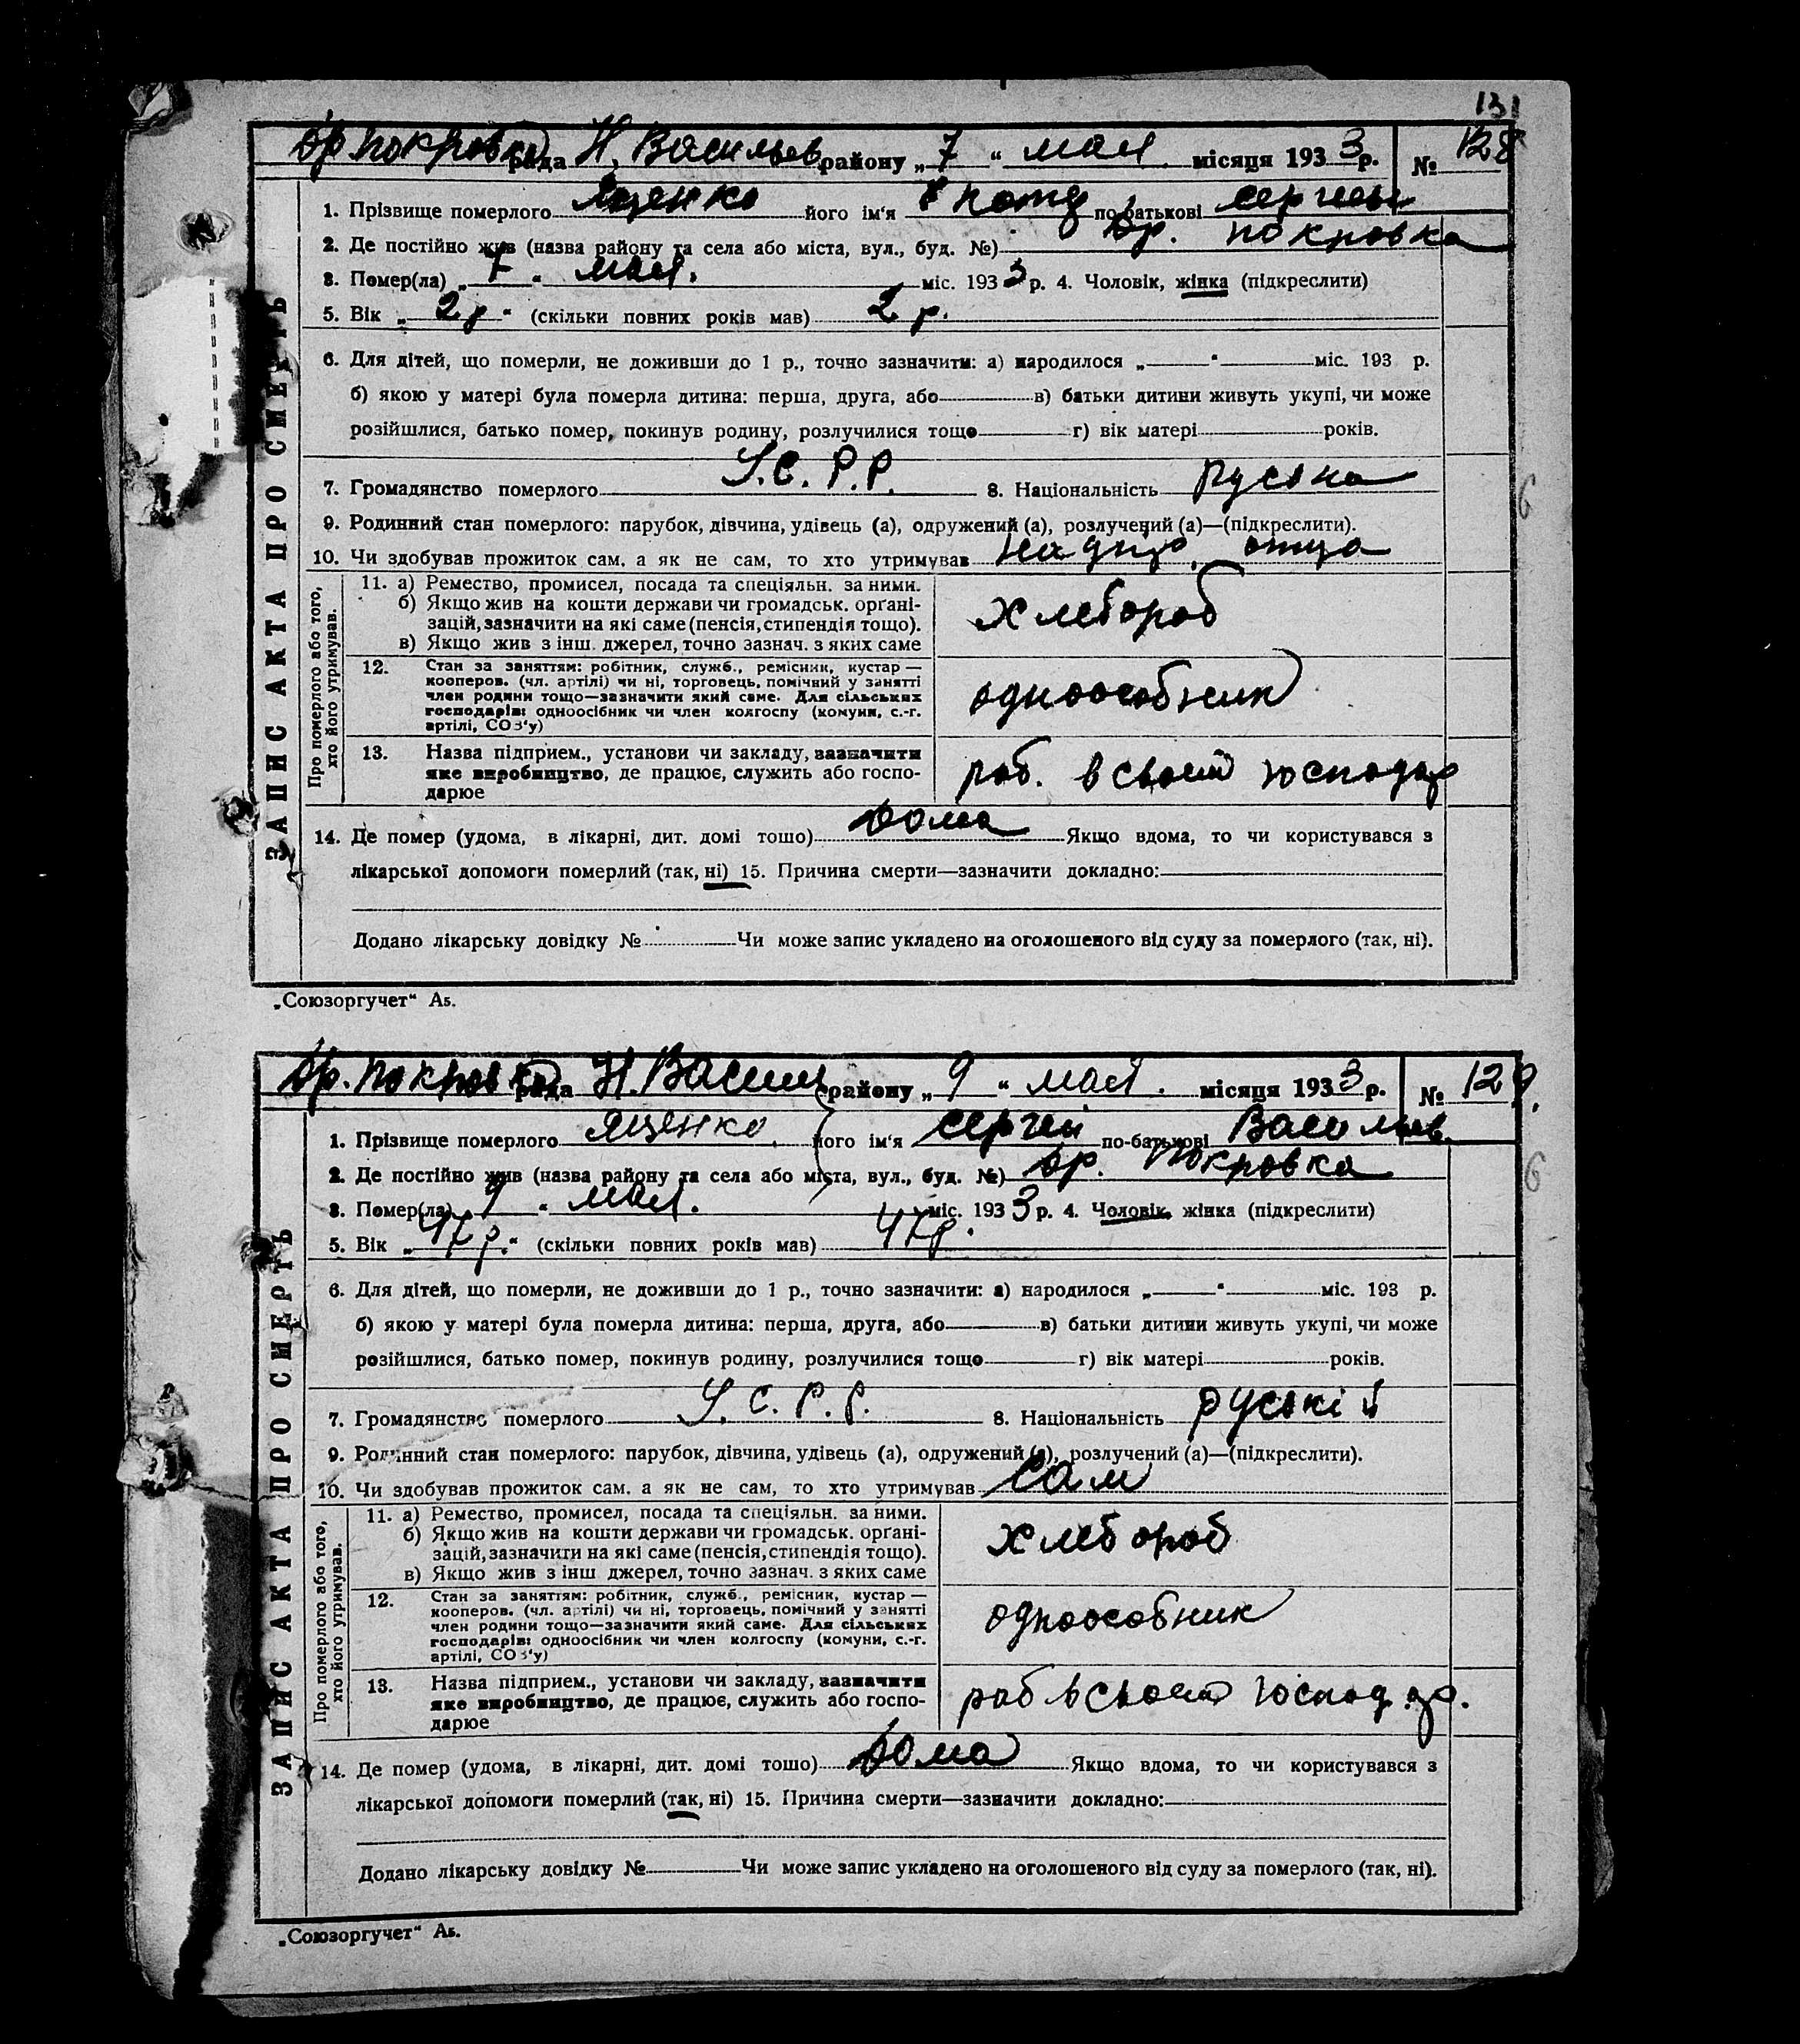 131
Вр. Покровка рада Н. Васильев. району „7“ мая. місяця 1933 р. № 128
1. Прізвище померлого Яценко його ім‘я по-батькові Сергеев
2. Де постійно жив (назва району та села або міста, вул., буд. №) Вр. Покровка
3. Помер(ла) „7“ мая. міс. 1933 р. 4. Чоловік, жінка (підкреслити)
5. Вік „2 р“ (скільки повних років мав) 2 р.
6. Для дітей, що померли, не доживши до 1 р., точно зазначити: а) народилося „ “ міс. 193 р.
б) якою у матері була померла дитина: перша, друга, або в) батьки дитини живуть укупі, чи може
розійшлися, батько помер, покинув родину, розлучилися тощо г) вік матері років.
7. Громадянство померлого У.С.Р.Р. 8. Національність руська
9. Родинний стан померлого: парубок, дівчина, удівець (а), одружений (а), розлучений (а)—(підкреслити).
10. Чи здобував прожиток сам, а як не сам, то хто утримував отца
Про померлого або того, хто його утримував.
11. а) Ремество, промисел, посада та спеціяльн. за ними.
б) Якщо жив на кошти держави чи громадськ. орґані-
зацій, зазначити на які саме (пенсія, стипендія тощо).
в) Якщо жив з інш. джерел, точно зазнач. з яких саме
хлебороб
12. Стан за заняттям: робітник, служб., ремісник, кустар —
кооперов. (чл. артілі) чи ні, торговець, помічний у занятті
член родини тощо—зазначити який саме. Для сільських
господарів: одноосібник чи член колгоспу (комуни, с.-г.
артілі, СОЗ‘у)
одноособник
13. Назва підприєм., установи чи закладу, зазначити
яке виробництво, де працює, служить або госпо-
дарює
раб. в своем господар
14. Де помер (удома, в лікарні, дит. домі тощо) Дома Якщо вдома, то чи користувався з
лікарської допомоги померлий (так, ні) 15. Причина смерти—зазначити докладно:
Додано лікарську довідку № Чи може запис укладено на оголошеного від суду за померлого (так, ні).
ЗАПИС АКТА ПРО СМЕРТЬ
„Союзоргучет“ А5.
6
Вр. Покровка рада Н. Васильев району „9“ мая. місяця 1933 р. № 129.
1. Прізвище померлого Яценко. його ім‘я Сергей по-батькові Васильев.
2. Де постійно жив (назва району та села або міста, вул., буд. №) Вр. Покровка
3. Помер(ла) „9“ мая. міс. 1933 р. 4. Чоловік, жінка (підкреслити)
5. Вік „47 р.“ (скільки повних років мав) 47 р.
6. Для дітей, що померли, не доживши до 1 р., точно зазначити: а) народилося „ “ міс. 193 р.
б) якою у матері була померла дитина: перша, друга, або в) батьки дитини живуть укупі, чи може
розійшлися, батько помер, покинув родину, розлучилися тощо г) вік матері років.
7. Громадянство померлого У.С.Р.Р. 8. Національність руський
9. Родинний стан померлого: парубок, дівчина, удівець (а), одружений (а), розлучений (а)—(підкреслити).
10. Чи здобував прожиток сам, а як не сам, то хто утримував Сам
Про померлого або того, хто його утримував.
11. а) Ремество, промисел, посада та спеціяльн. за ними.
б) Якщо жив на кошти держави чи громадськ. орґані-
зацій, зазначити на які саме (пенсія, стипендія тощо).
в) Якщо жив з інш джерел, точно зазнач. з яких саме
хлебороб
12. Стан за заняттям: робітник, служб., ремісник, кустар —
кооперов. (чл. артілі) чи ні, торговець, помічний у занятті
член родини тощо—зазначити який саме. Для сільських
господарів: одноосібник чи член колгоспу (комуни, с.-г.
артілі, СОЗ‘у)
одноособник
13. Назва підприєм., установи чи закладу, зазначити
яке виробництво, де працює, служить або госпо-
дарює
раб в своем господар.
14. Де помер (удома, в лікарні, дит. домі тощо) Дома Якщо вдома, то чи користувався з
лікарської допомоги померлий (так, ні) 15. Причина смерти—зазначити докладно:
Додано лікарську довідку № Чи може запис укладено на оголошеного від суду за померлого (так, ні).
ЗАПИС АКТА ПРО СМЕРТЬ
„Союзоргучет“ А5.
6